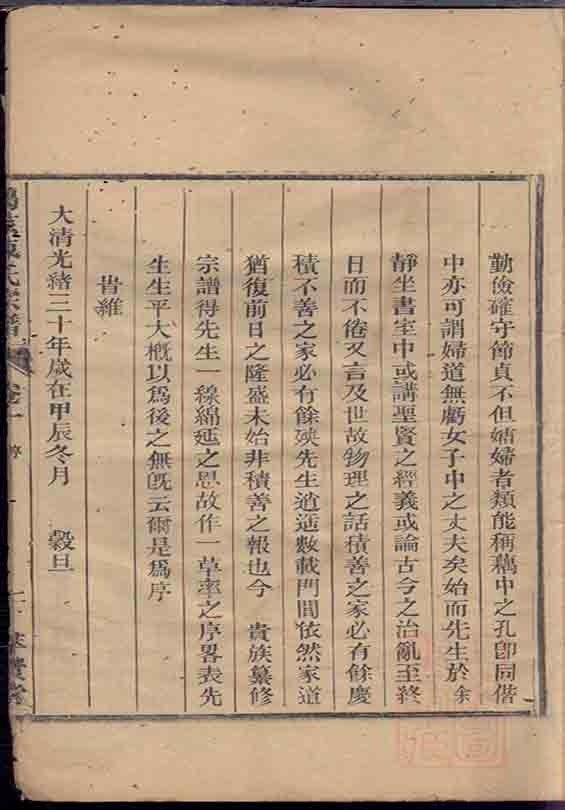 勤儉確守節貞不但嫠婦者類能稱藕中之孔卽同偕
中亦可謂婦道無虧女子中之丈夫矣始而先生於余
靜坐書室中或講聖賢之經義或論古今之治亂至終
日而不倦又言及世故物理之話積善之家必有餘慶
積不善之家必有餘殃先生逍遥數載門閭依然家道
猶復前日之隆盛未始非積善之報也今 貴族纂修
宗譜得先生一線綿延之思故作一草率之序畧表先
生生平大槪以爲後之無旣云爾是爲序
旹維
大清光緒三十年歲在甲辰冬月 穀旦
氏宗譜 卷一 序